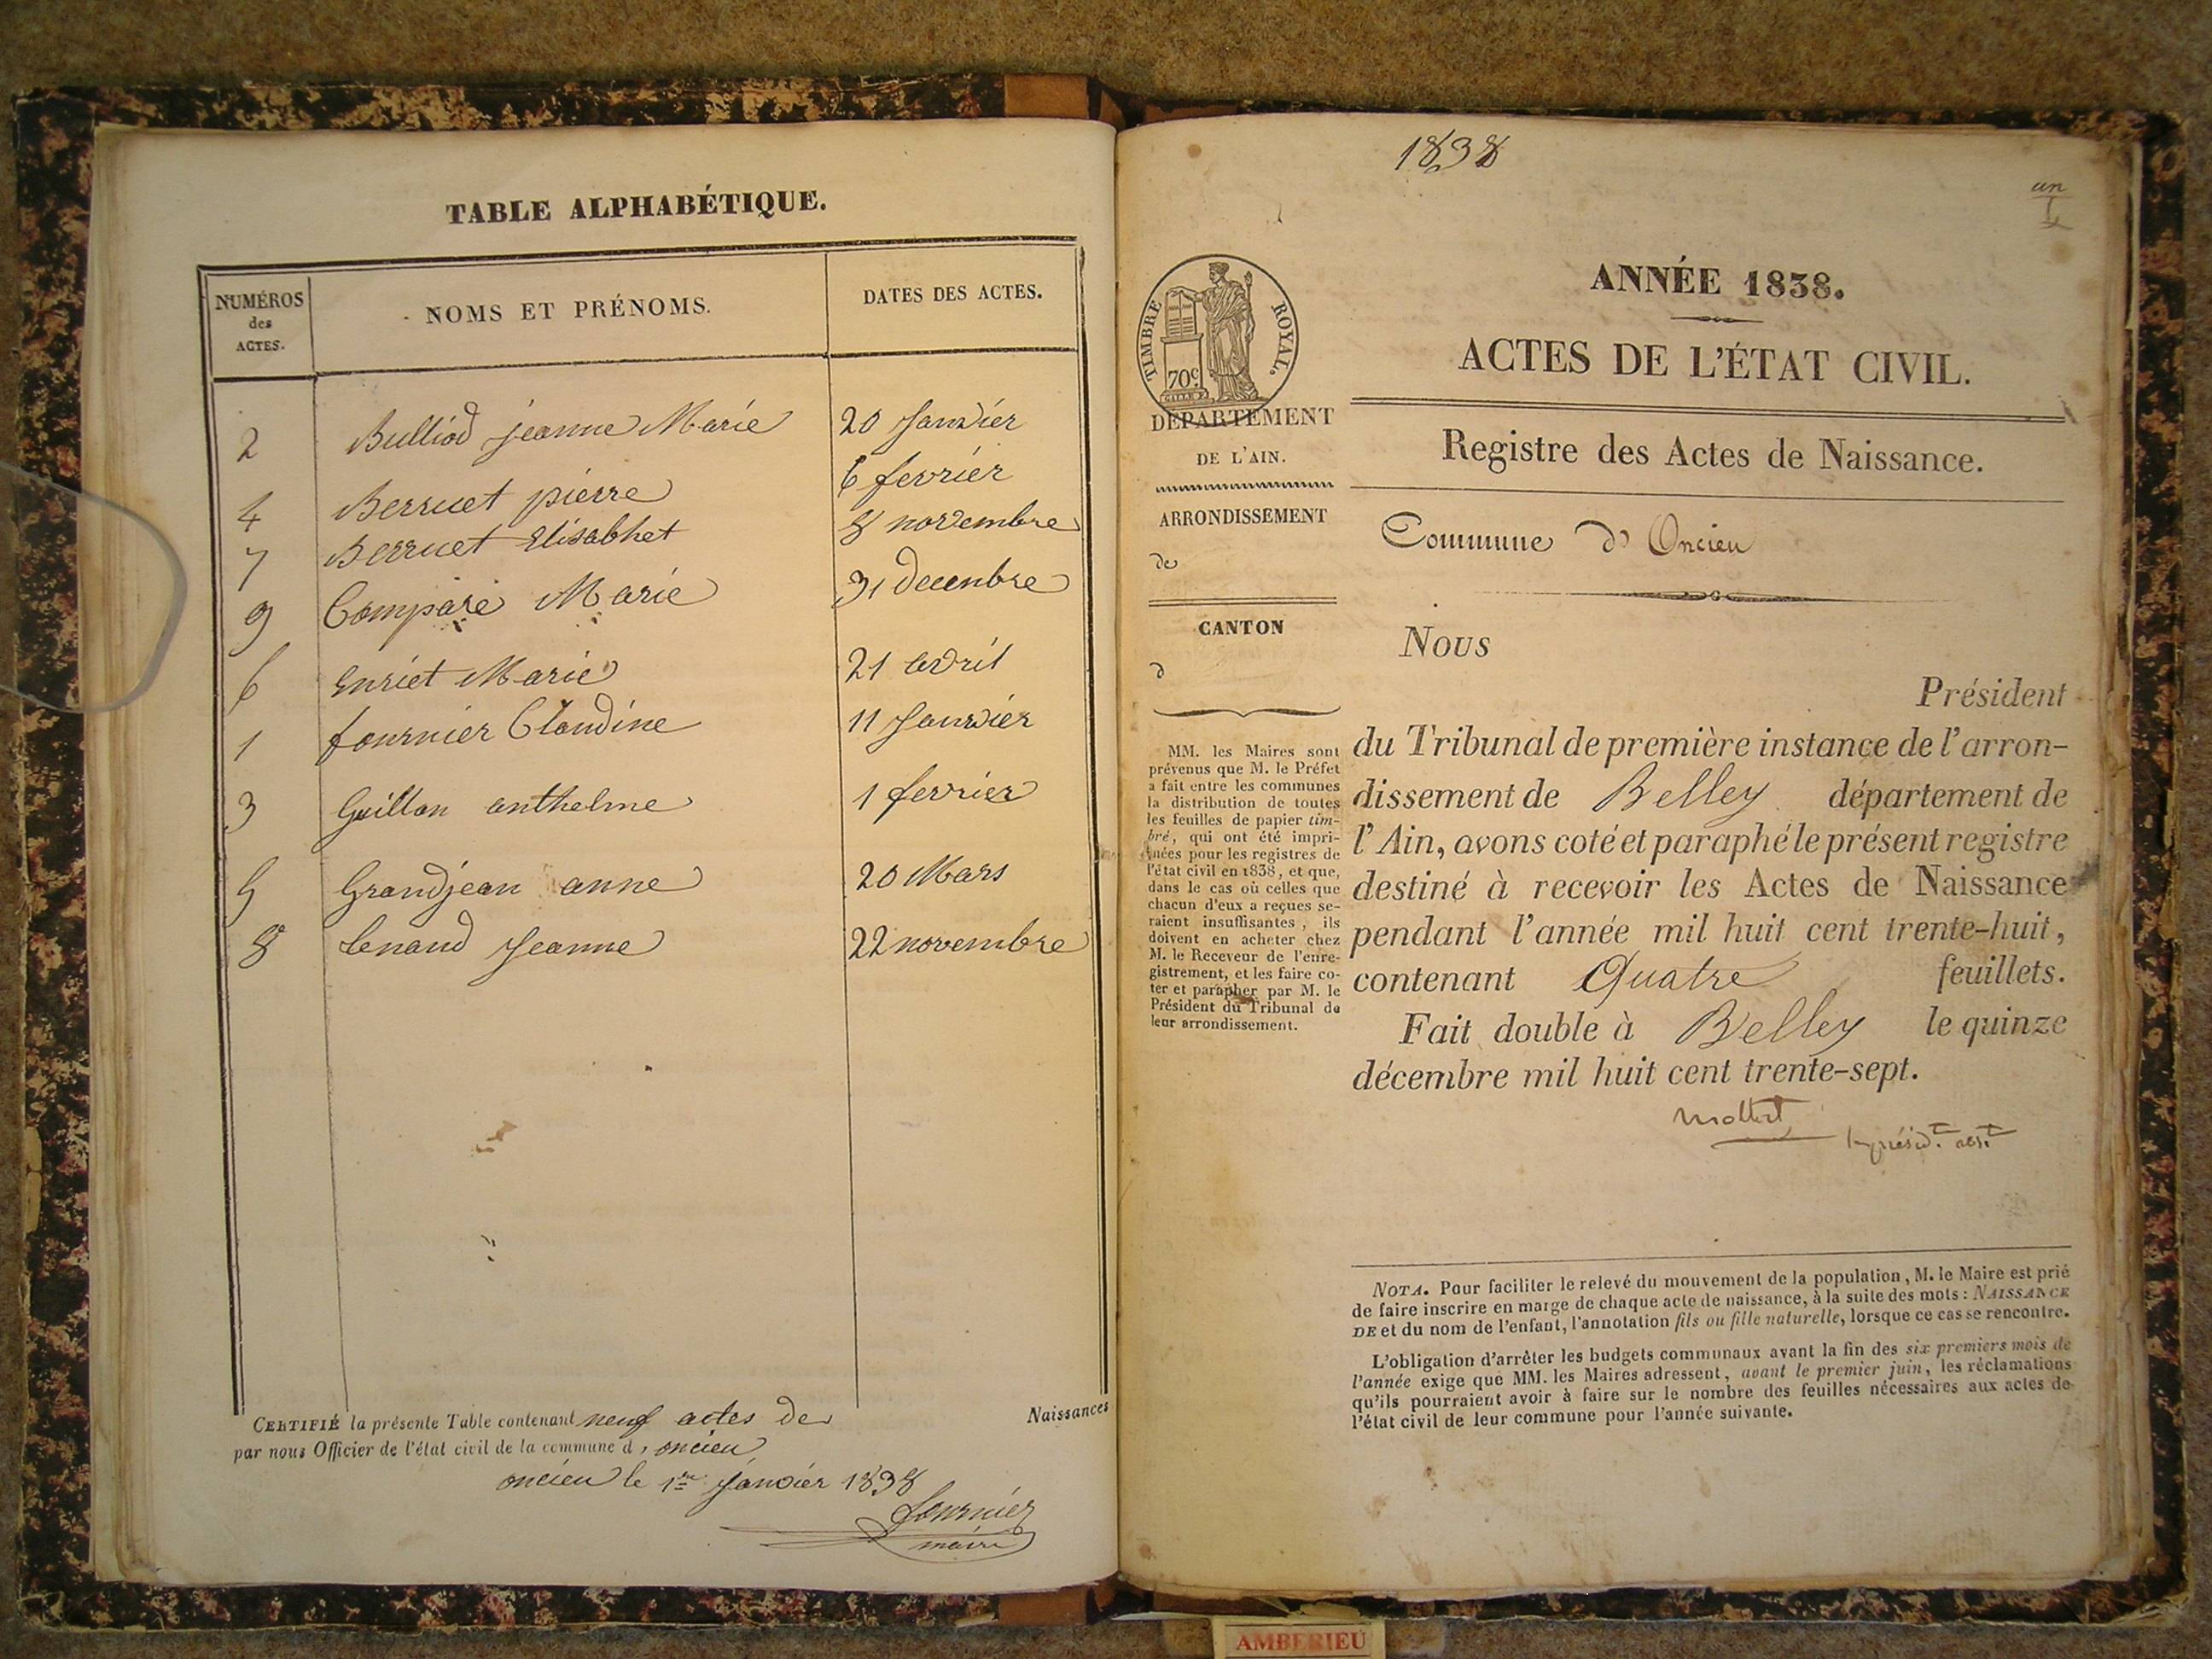 TABLE ALPHABÉTIQUE.
NUMÉROS
des
ACTES.
NOMS ET PRÉNOMS.
DATES DES ACTES.
2 Bulliod jeanne Marie 20 Janvier
4 Berruet pierre 6 fevrier
7 Berruet Elisabhet 8 novembre
9 Compare Marie 31 decenbre
6 Enriet Marie 21 avril
1 fournier Claudine 11 Janvier
3 Guillon anthelme 1 fevrier
5 Grandjean anne 20 Mars
8 Lenand Jeanne 22 novembre
CERTIFIÉ la présente Table contenant neuf actes de Naissances
par nous Officier de l'état civil de la commune d, oncieu
oncieu le 1er Janvier 1838
fournier
maire
1838
un
1
TIMBRE ROYAL.
70c
DÉPARTEMENT
DE L'AIN.
ARRONDISSEMENT
de
CANTON
d
MM. les Maires sont
prévenus que M. le Préfet
a fait entre les communes
la distribution de toutes
les feuilles de papier tim-
bré, qui ont été impri-
mées pour les registres de
l'état civil en 1838, et que,
dans le cas où celles que
chacun d'eux a reçues se-
raient insuffisantes, ils
doivent en acheter chez
M. le Receveur de l'enre-
gistrement, et les faire co-
ter et parapher par M. le
Président du Tribunal de
leur arrondissement.
ANNÉE 1838.
ACTES DE L'ÉTAT CIVIL.
Registre des Actes de Naissance.
Commune d'Oncieu
Nous
Président
du Tribunal de première instance de l'arron-
dissement de Belley département de
l'Ain, avons coté et paraphé le présent registre
destiné à recevoir les Actes de Naissance
pendant l'année mil huit cent trente-huit,
contenant Quatre feuillets.
Fait double à Belley le quinze
décembre mil huit cent trente-sept.
NOTA. Pour faciliter le relevé du mouvement de la population, M. le Maire est prié
de faire inscrire en marge de chaque acte de naissance, à la suite des mots: NAISSANCE
DE et du nom de l'enfant, l'annotation fils ou fille naturelle, lorsque ce cas se rencontre.
L'obligation d'arrêter les budgets communaux avant la fin des six premiers mois de
l'année exige que MM. les Maires adressent, avant le premier juin, les réclamations
qu'ils pourraient avoir à faire sur le nombre des feuilles nécessaires aux actes de
l'état civil de leur commune pour l'année suivante.
AMBERIEU